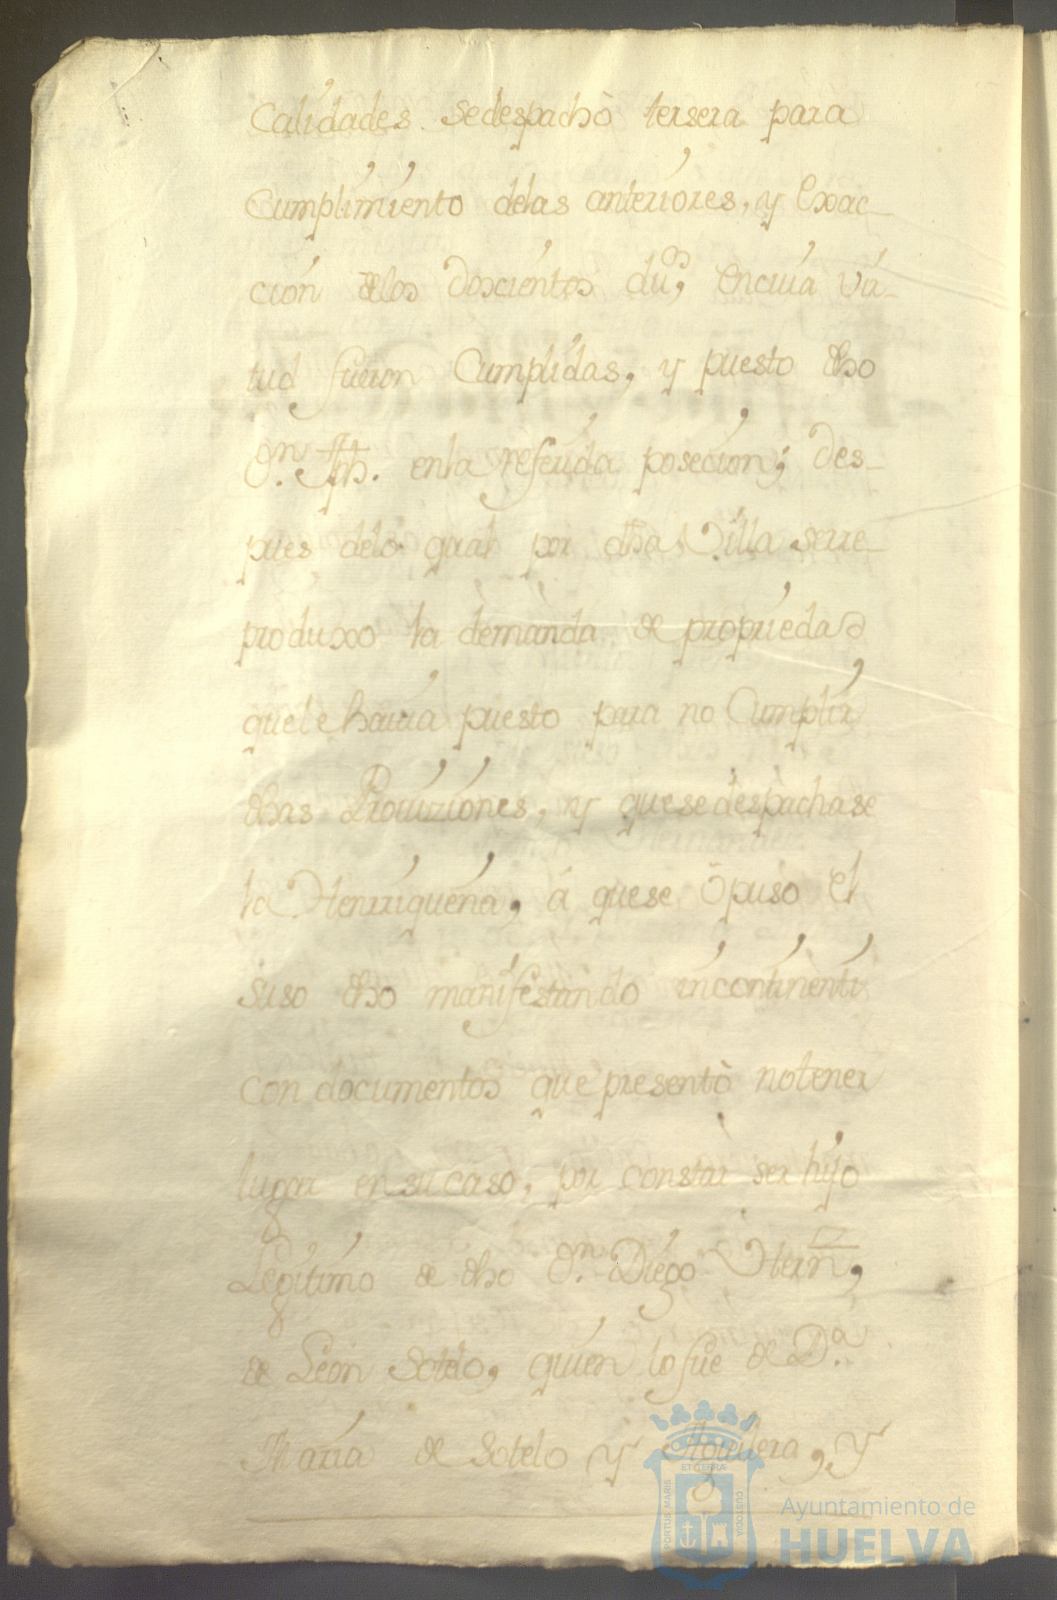 Calidades. sedespachò tersera para
Cumplimiento delas anteriores, y Exac-
ción delos Doscientos du.os, Encuia vir-
tud fueron Cumplidas, y puesto dho
Dn. Jph. enla referida poseción; des-
pues delo qual por dha Villa serre-
produxo la demanda de propriedad
quele havia puesto para no Cumplir
dhas Proviziones, y quesedespachase
la Henrriqueña, á quese ôpuso el
suso dho manifestando incontinenti
con documentos que presentò notener
lugar en su caso, por constar ser hijo
Legitimo de dho Dn. Diego Hern,
de León Sotelo, quien lo fue de Da.
Maria de Sotelo y Aguilera, y
PORTUS MARIS
ET TERRÆ
CUSTODIA
Ayuntamiento de
HUELVA